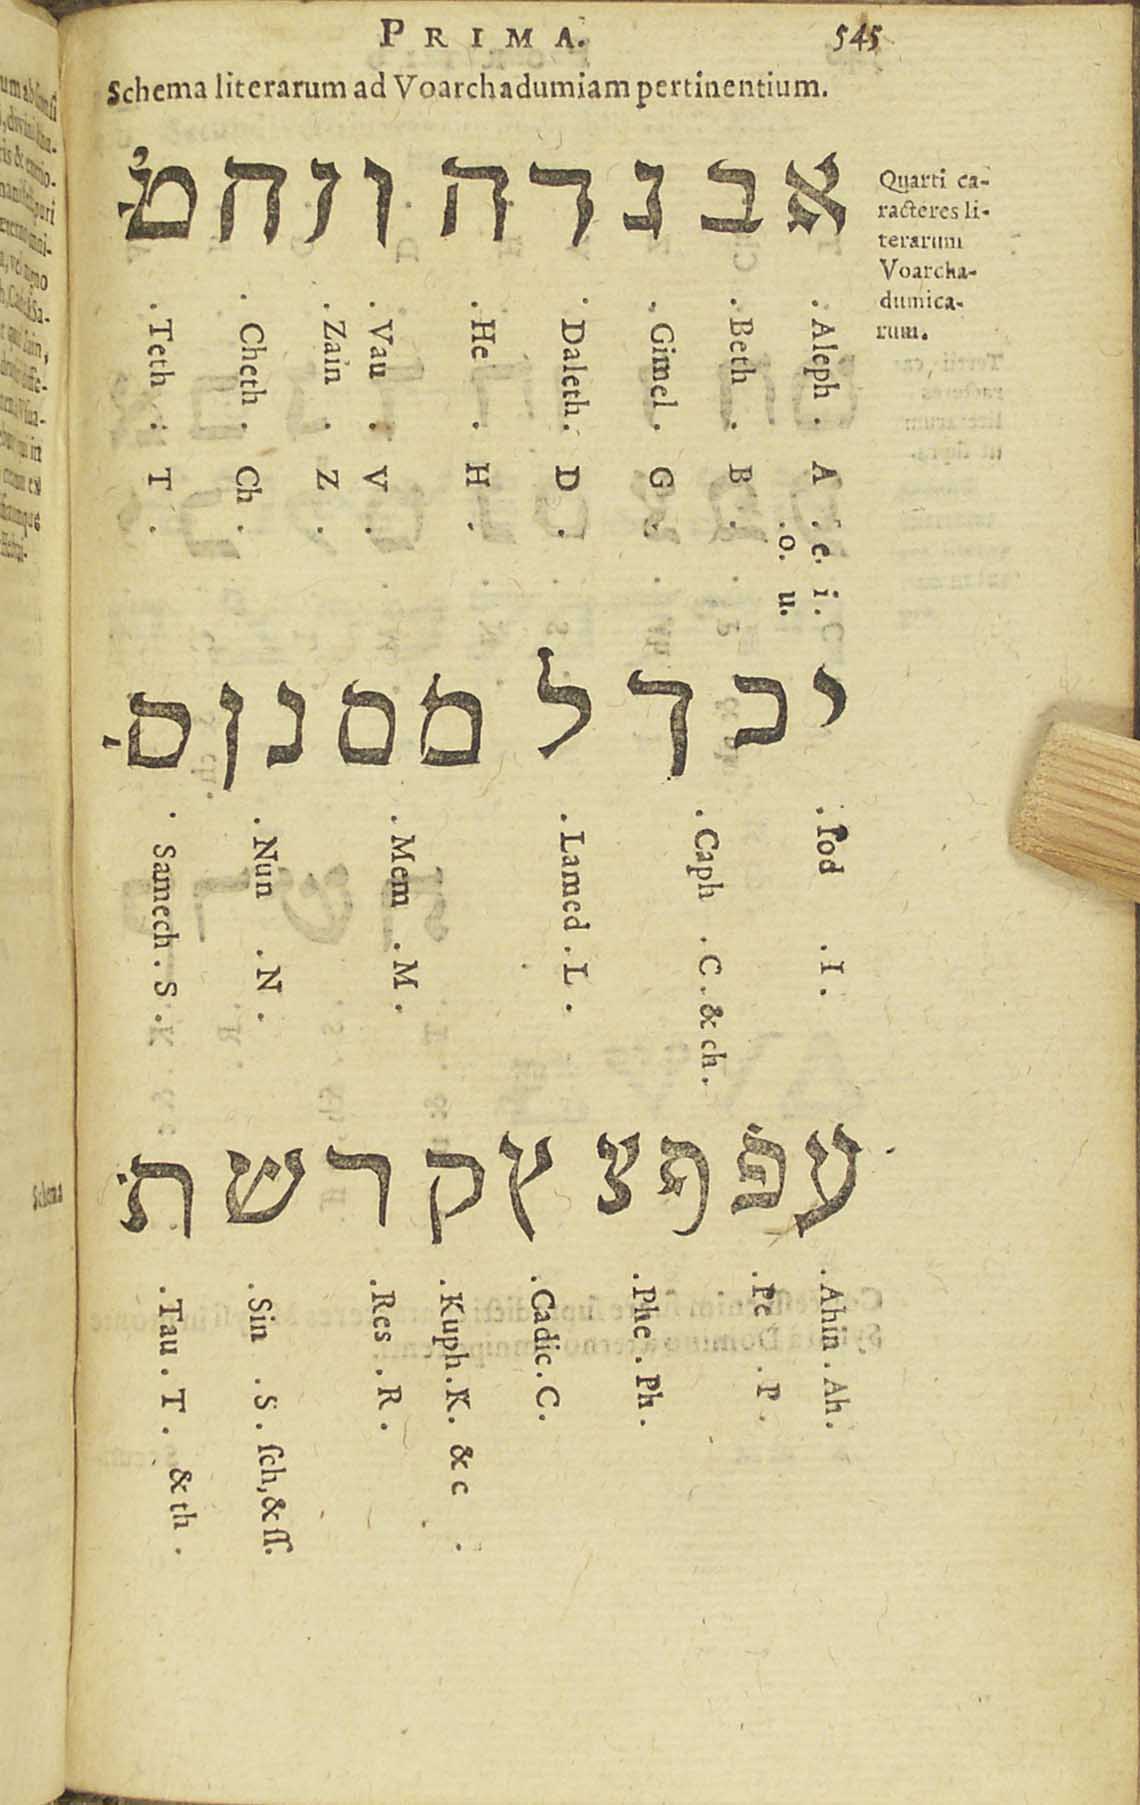 PRIMA. 545
Schema literarum ad Voarchadumiam pertinentium.
Quarti ca-
racteres li-
terarum
Voarcha-
dumica-
rum.
א ב ג ד ה ו ז ח ט
. Aleph . A . e. i.
. o. u.
. Beth . B .
. Gimel . G .
. Daleth . D .
. He . H .
. Vau . V .
. Zain . Z .
. Cheth . Ch .
. Teth . T .
י כ ך ל מ ם נ ן ס
. Iod . I .
. Caph . C . & ch .
. Lamed . L .
. Mem . M .
. Nun . N .
. Samech . S .
ע פ ף צ ץ ק ר ש ת
. Ahin . Ah .
. Pe . P .
. Phe . Ph .
. Cadic . C .
. Kuph . K . & c .
. Res . R .
. Sin . S . ſch, & ſſ.
. Tau . T . & th .
Schema